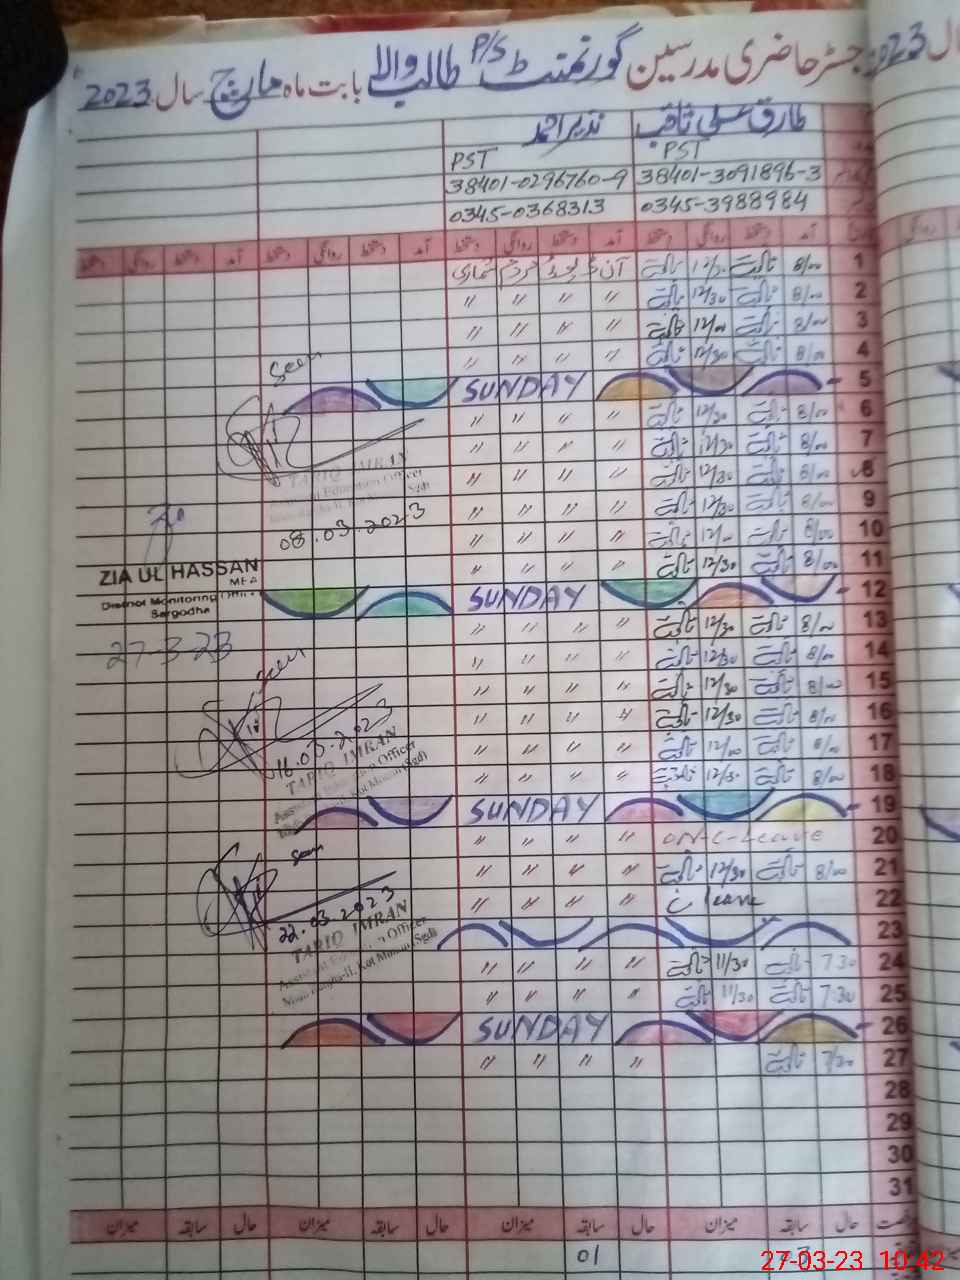 رجسٹر حاضری مدرسین گورنمنٹ P/S طالب والا بابت ماہ مارچ سال 2023
2023
طارق علی ثاقب نذیر احمد
PST PST
38401-3091896-3 38401-0296760-9
0345-3988984 0345-0368313
آمد دستخط روانگی دستخط آمد دستخط روانگی دستخط آمد دستخط روانگی دستخط آمد دستخط روانگی دستخط
1 8/00 ثاقب 12/30 ثاقب آن ڈیوٹی مردم شماری
2 8/00 ثاقب 12/30 ثاقب " " " "
3 8/00 ثاقب 12/00 ثاقب " " " "
4 8/00 ثاقب 12/30 ثاقب " " " "
Seen
5 SUNDAY
6 8/00 ثاقب 12/30 ثاقب " " " "
7 8/00 ثاقب 12/30 ثاقب " " " "
TARIQ IMRAN
8 8/00 ثاقب 12/30 ثاقب " " " "
Education Officer
9 8/00 ثاقب 12/30 ثاقب " " " "
08.03.2023
10 8/00 ثاقب 12/00 ثاقب " " " "
11 8/00 ثاقب 12/30 ثاقب " " " "
ZIA UL HASSAN
MEA
District Monitoring Officer
Sargodha
27-3-23
12 SUNDAY
13 8/00 ثاقب 12/30 ثاقب " " " "
14 8/00 ثاقب 12/30 ثاقب " " " "
Seen
15 8/00 ثاقب 12/30 ثاقب " " " "
16 8/00 ثاقب 12/30 ثاقب " " " "
16.03.2023
TARIQ IMRAN
17 8/00 ثاقب 12/00 ثاقب " " " "
18 8/00 ثاقب 12/30 ثاقب " " " "
Assistant Education Officer
Kot Momin (Sgd)
19 SUNDAY
20 ON-C-Leave " " " "
Seen
21 8/00 ثاقب 12/30 ثاقب " " " "
22 leave " " " "
22.03.2023
TARIQ IMRAN
Assistant Education Officer
Kot Momin (Sgd)
23
24 7.30 ثاقب 11/30 ثاقب " " " "
25 7:30 ثاقب 11/30 ثاقب " " " "
26 SUNDAY
27 7/30 ثاقب " " " "
28
29
30
31
حال سابقہ میزان حال سابقہ میزان حال سابقہ میزان حال سابقہ میزان
01
27-03-23 10:42